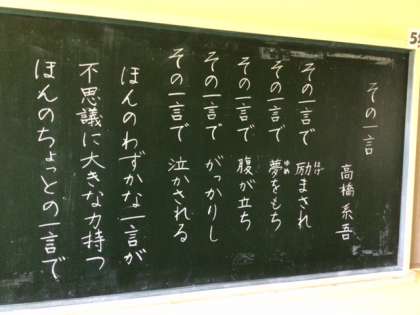 その一言
高橋系吾
その一言で 励まされ
その一言で 夢をもち
その一言で 腹が立ち
その一言で がっかりし
その一言で 泣かされる
ほんのわずかな一言が
不思議に大きな力持つ
ほんのちょっとの一言で